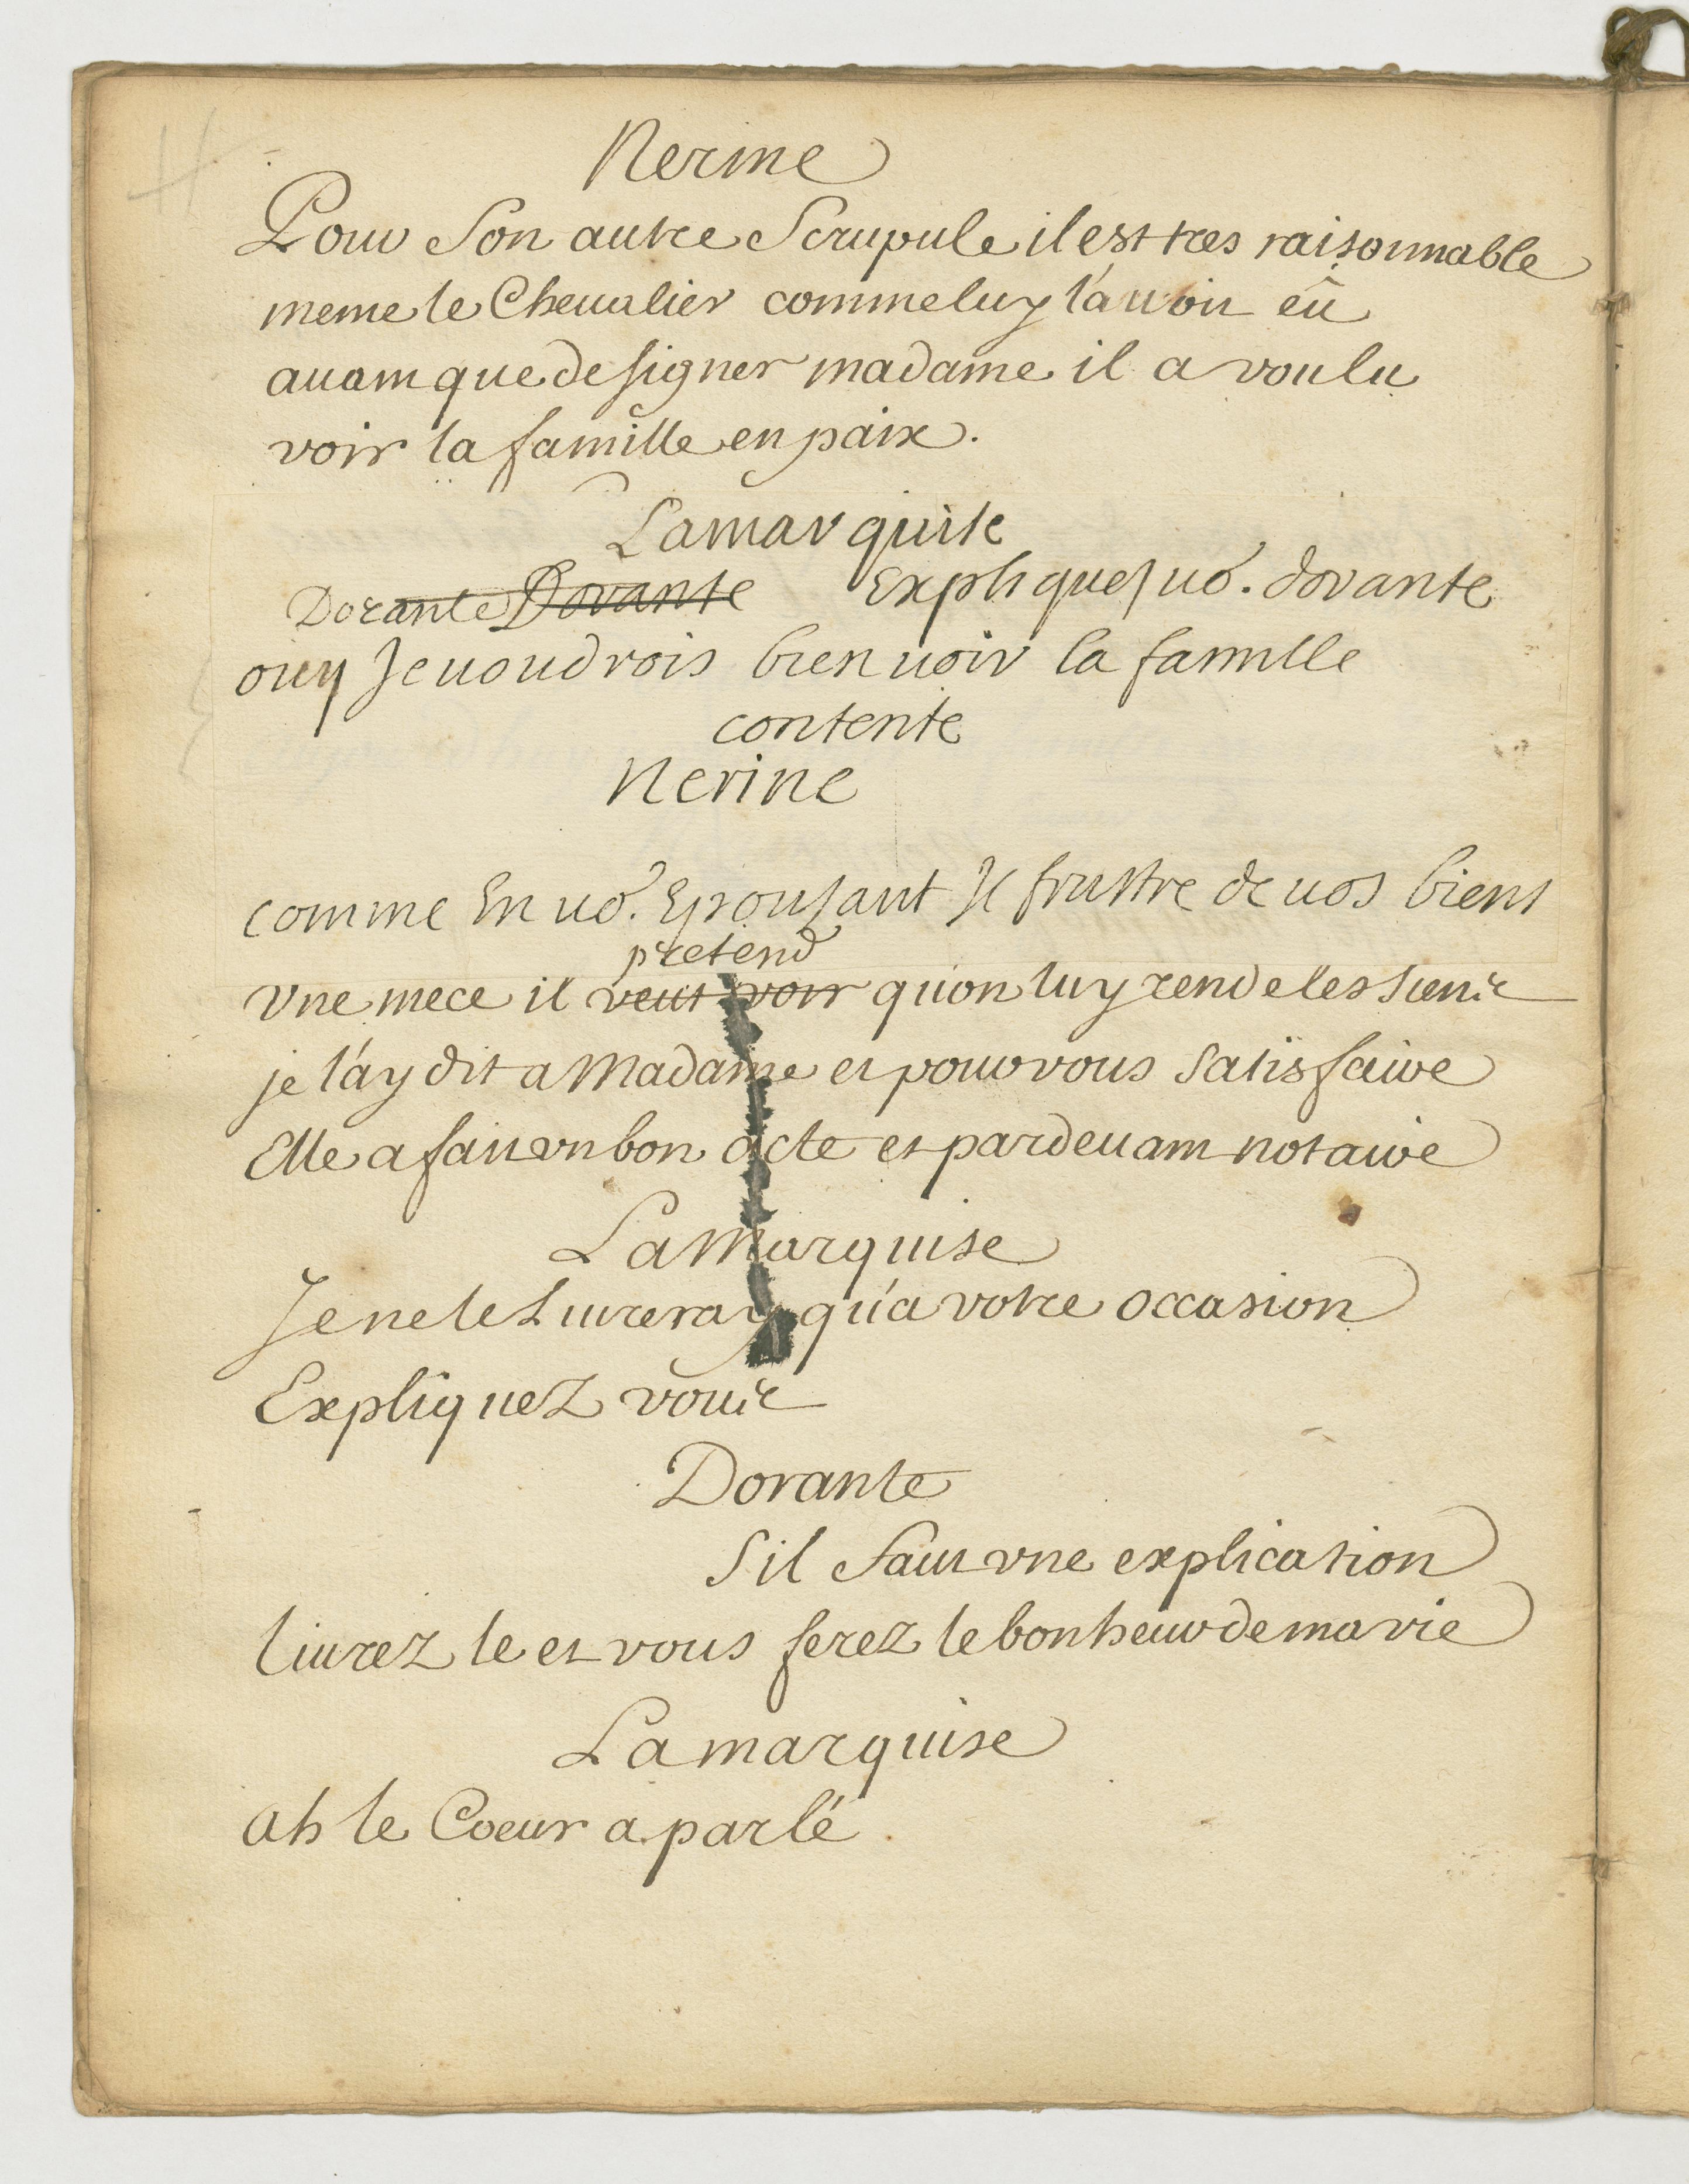 Nerine
Pour Son autre Scrupule il est tres raisonnable
meme le Chevalier comme luy l'avoit eû
avant que de signer madame il a voulu
voir la famille en paix.
La marquise
Dorante Dorante Expliques vo'. dorante
ouy Je voudrois bien voir la famille
contente
Nerine
comme En vo'. Epousant Il frustre de vos biens
pretend
vne niece il veut voir qu'on luy rende les siens
je l'ay dit a Madame et pour vous satisfaire
Elle a fait vn bon acte et pardevant notaire
La Marquise
Je ne le Livreray qu'a votre occasion
Expliquez vous
Dorante
S'il faut vne explication
livrez le et vous ferez le bonheur de ma vie
La marquise
ah le Coeur a parlé